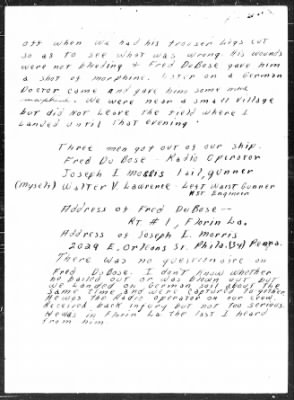 off when we had his trouser legs cut
so as to see what was wrong. His wounds
were not bleeding & Fred DuBose gave him
a shot of morphine. Later on a German
Doctor came and gave him some more
morphine. We were near a small village
but did not leave the field where I
landed until that evening.
Three men got out of our ship.
Fred Du Bose - Radio Operator
Joseph L Morris tail, gunner
(myself) Walter V. Lawrence - Left Waist Gunner
Asst Engineer
Address of Fred DuBose --
RT # 1, Florin La.
Address of Joseph L. Morris
2029 E. Orleans St. Phila. (34) Penna.
There was no questionaire on
Fred DuBose. I don't know whether
he bailed out or was blown out but
we landed on German soil about the
same time and were captured together.
He was the Radio operator on our crew.
Received back injury but not too serious.
He was in Florin La the last I heard
from him